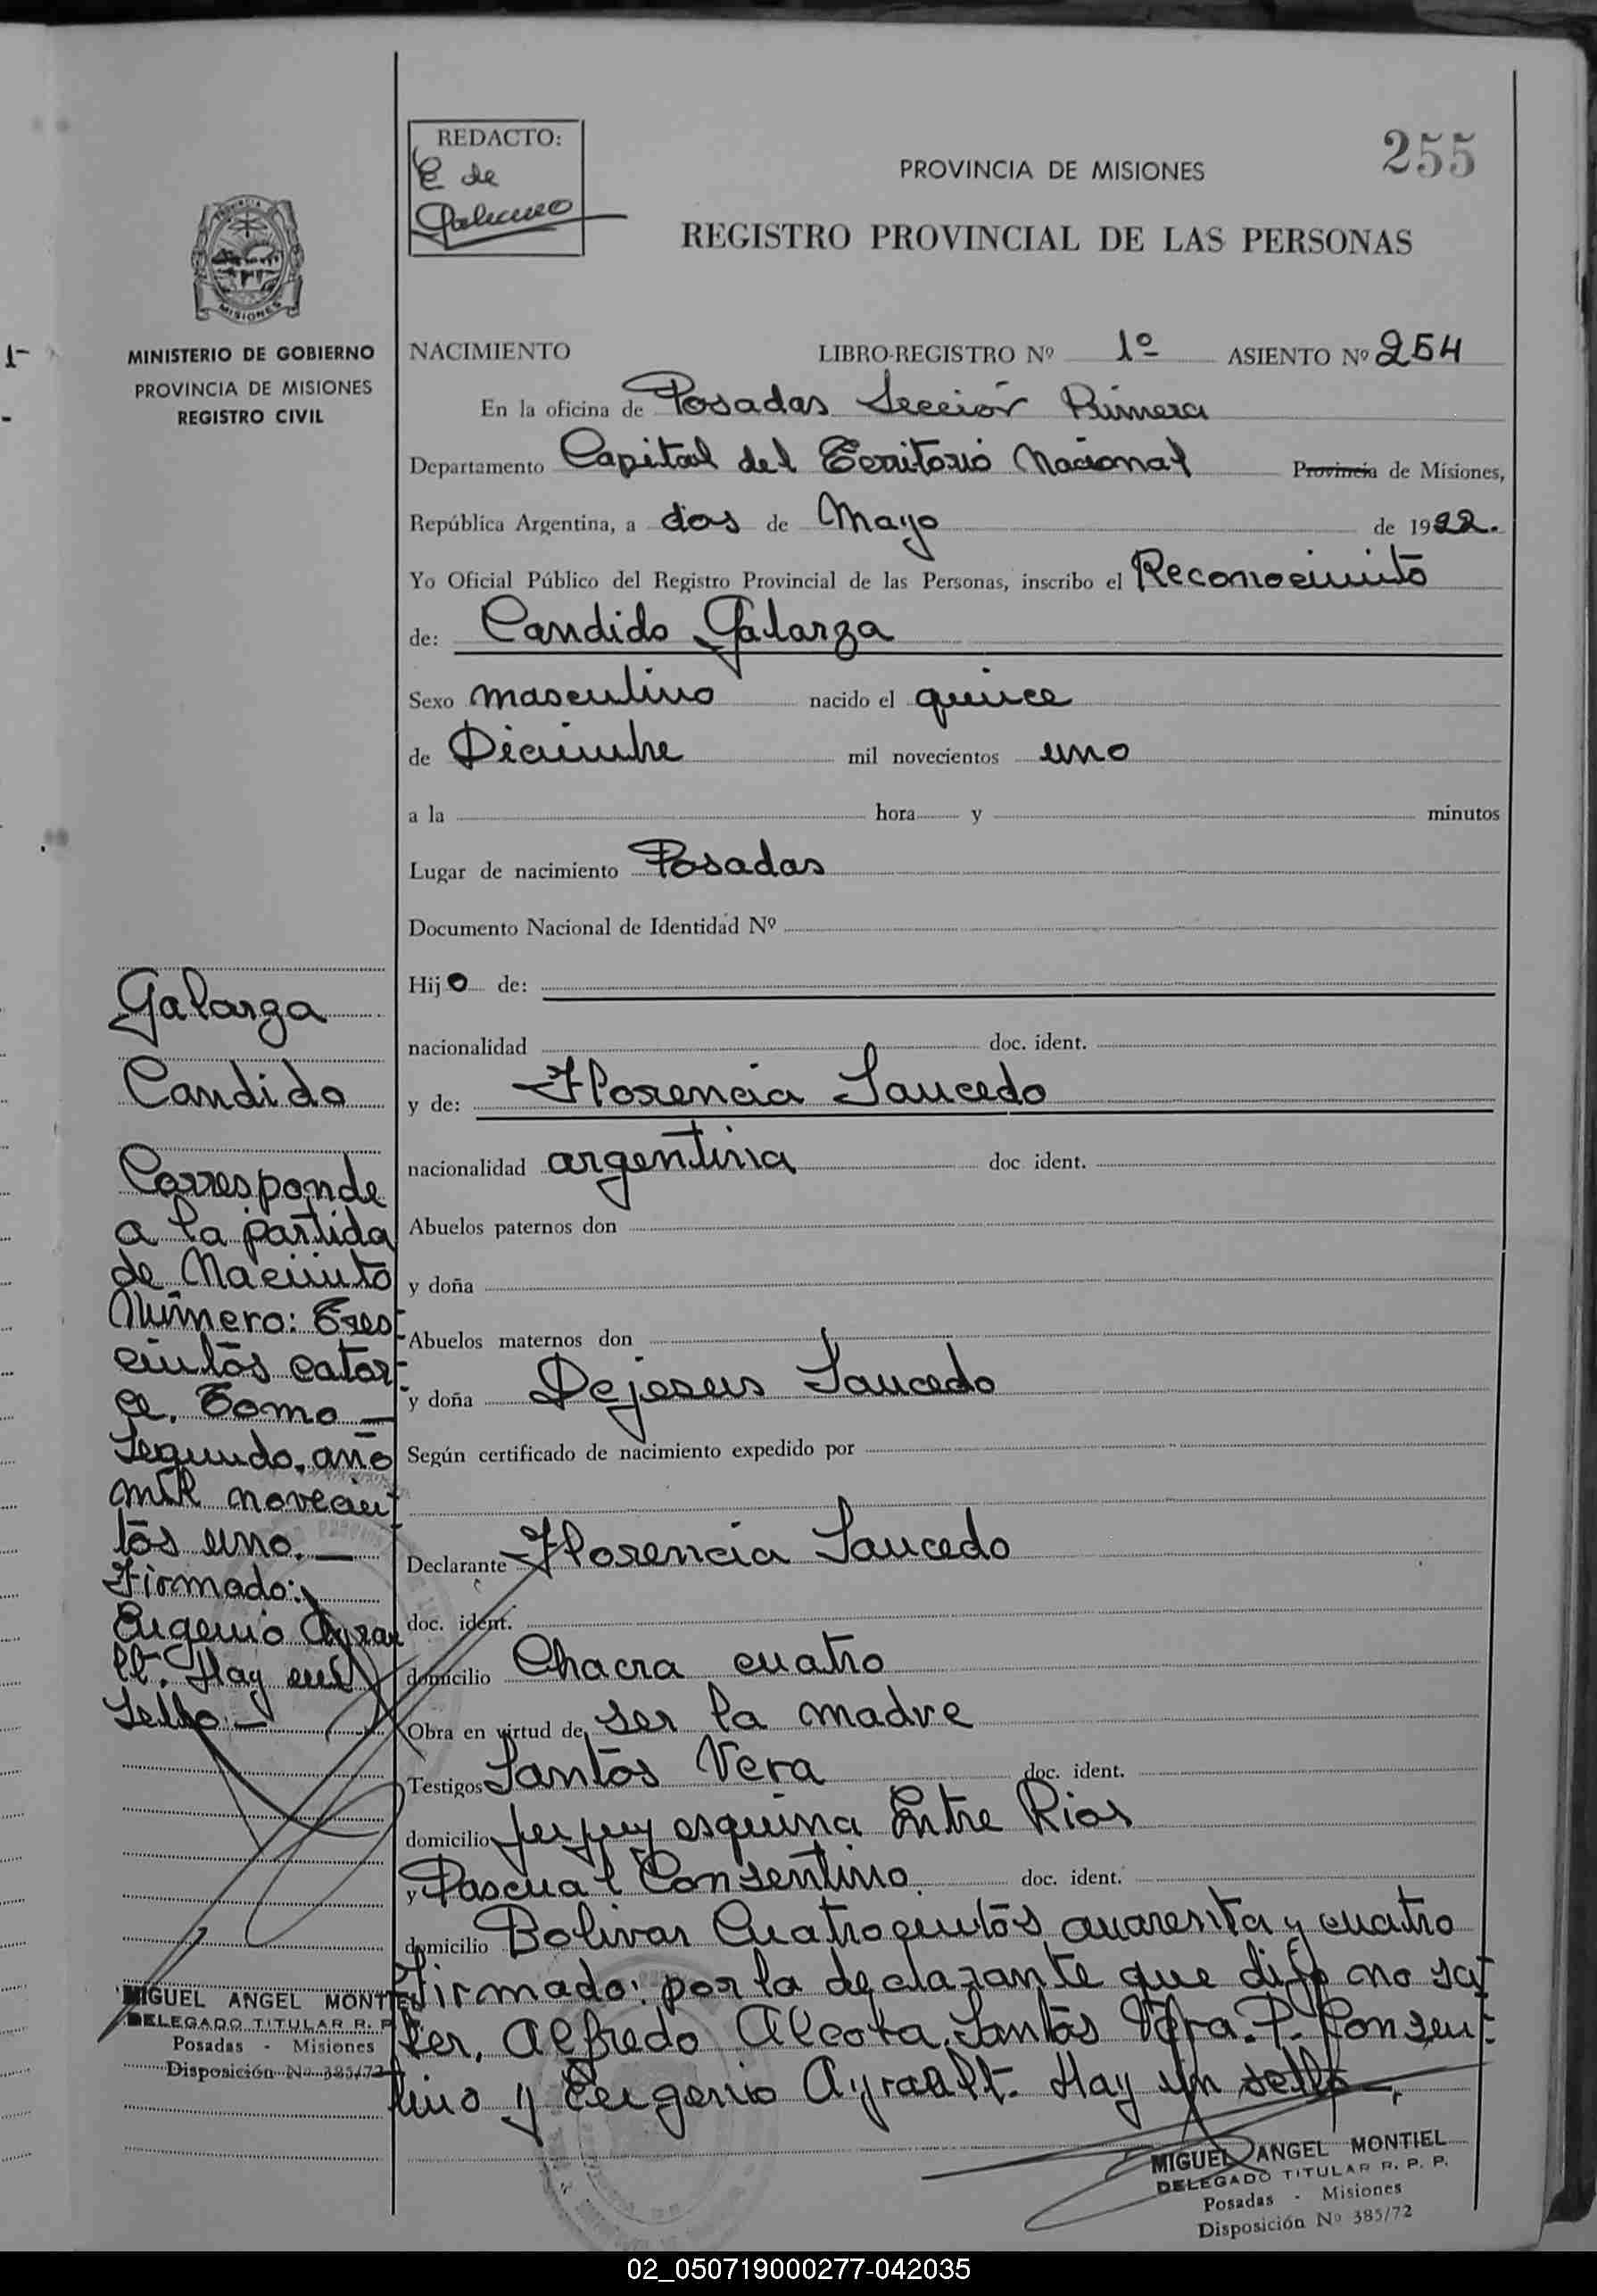 255
REDACTO:
E de
Galeano
PROVINCIA DE MISIONES
REGISTRO PROVINCIAL DE LAS PERSONAS
MISIONES
MINISTERIO DE GOBIERNO
PROVINCIA DE MISIONES
REGISTRO CIVIL
NACIMIENTO LIBRO-REGISTRO Nº 1º ASIENTO Nº 254
En la oficina de Posadas Sección Primera
Departamento Capital del Territorio Nacional Provincia de Misiones,
República Argentina, a dos de Mayo de 1922.
Yo Oficial Público del Registro Provincial de las Personas, inscribo el Reconocimiento
de: Candido Galarza
Sexo masculino nacido el quince
de Diciembre mil novecientos uno
a la hora y minutos
Lugar de nacimiento Posadas
Documento Nacional de Identidad Nº
Hijo de:
nacionalidad doc. ident.
y de: Florencia Saucedo
nacionalidad argentina doc ident.
Abuelos paternos don
y doña
Abuelos maternos don
y doña Dejesus Saucedo
Según certificado de nacimiento expedido por
Declarante Florencia Saucedo
doc. ident.
domicilio Chacra cuatro
Obra en virtud de ser la madre
Testigos Santos Vera doc. ident.
domicilio Jujuy esquina Entre Rios
y Pascual Consentino. doc. ident.
domicilio Bolivar Cuatrocientos cuarenta y cuatro
Firmado: por la declarante que dijo no sa-
ber, Alfredo Alcota. Santos Vera. P. Consen-
tino y Eugenio Ayrault. Hay un sello.
Galarza
Candido
Corresponde
a la partida
de Nacimiento
Número: Tres
cientos cator-
ce. Tomo
Segundo, año
mil novecien
tos uno.
Firmado:
Eugenio Ayrau
lt. Hay un
sello.
MIGUEL ANGEL MONTIEL
DELEGADO TITULAR R. P.
Posadas - Misiones
Disposición Nº 385/72
MIGUEL ANGEL MONTIEL
DELEGADO TITULAR R. P. P.
Posadas - Misiones
Disposición Nº 385/72
02_050719000277-042035